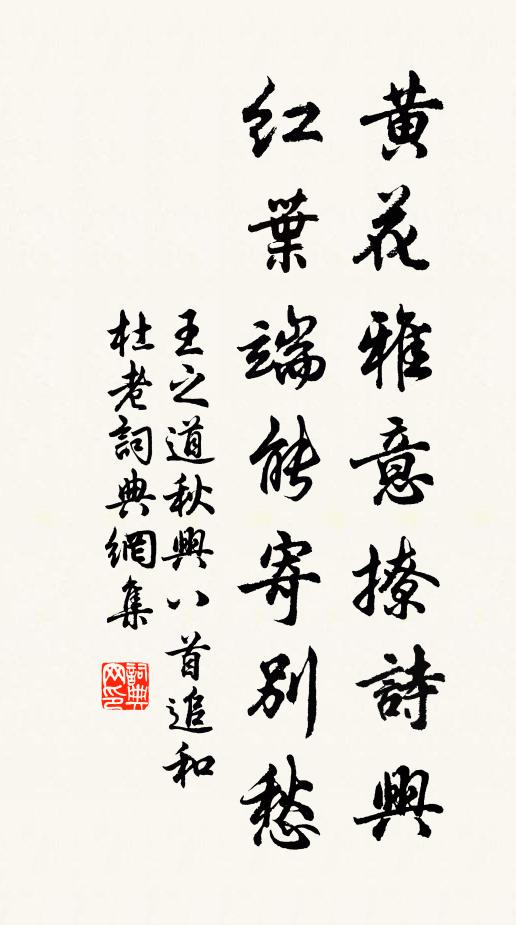 黄花雅意撩詩興
紅葉端能寄別愁
王之道秋興八首追和
杜老詞典網集
詞典網印